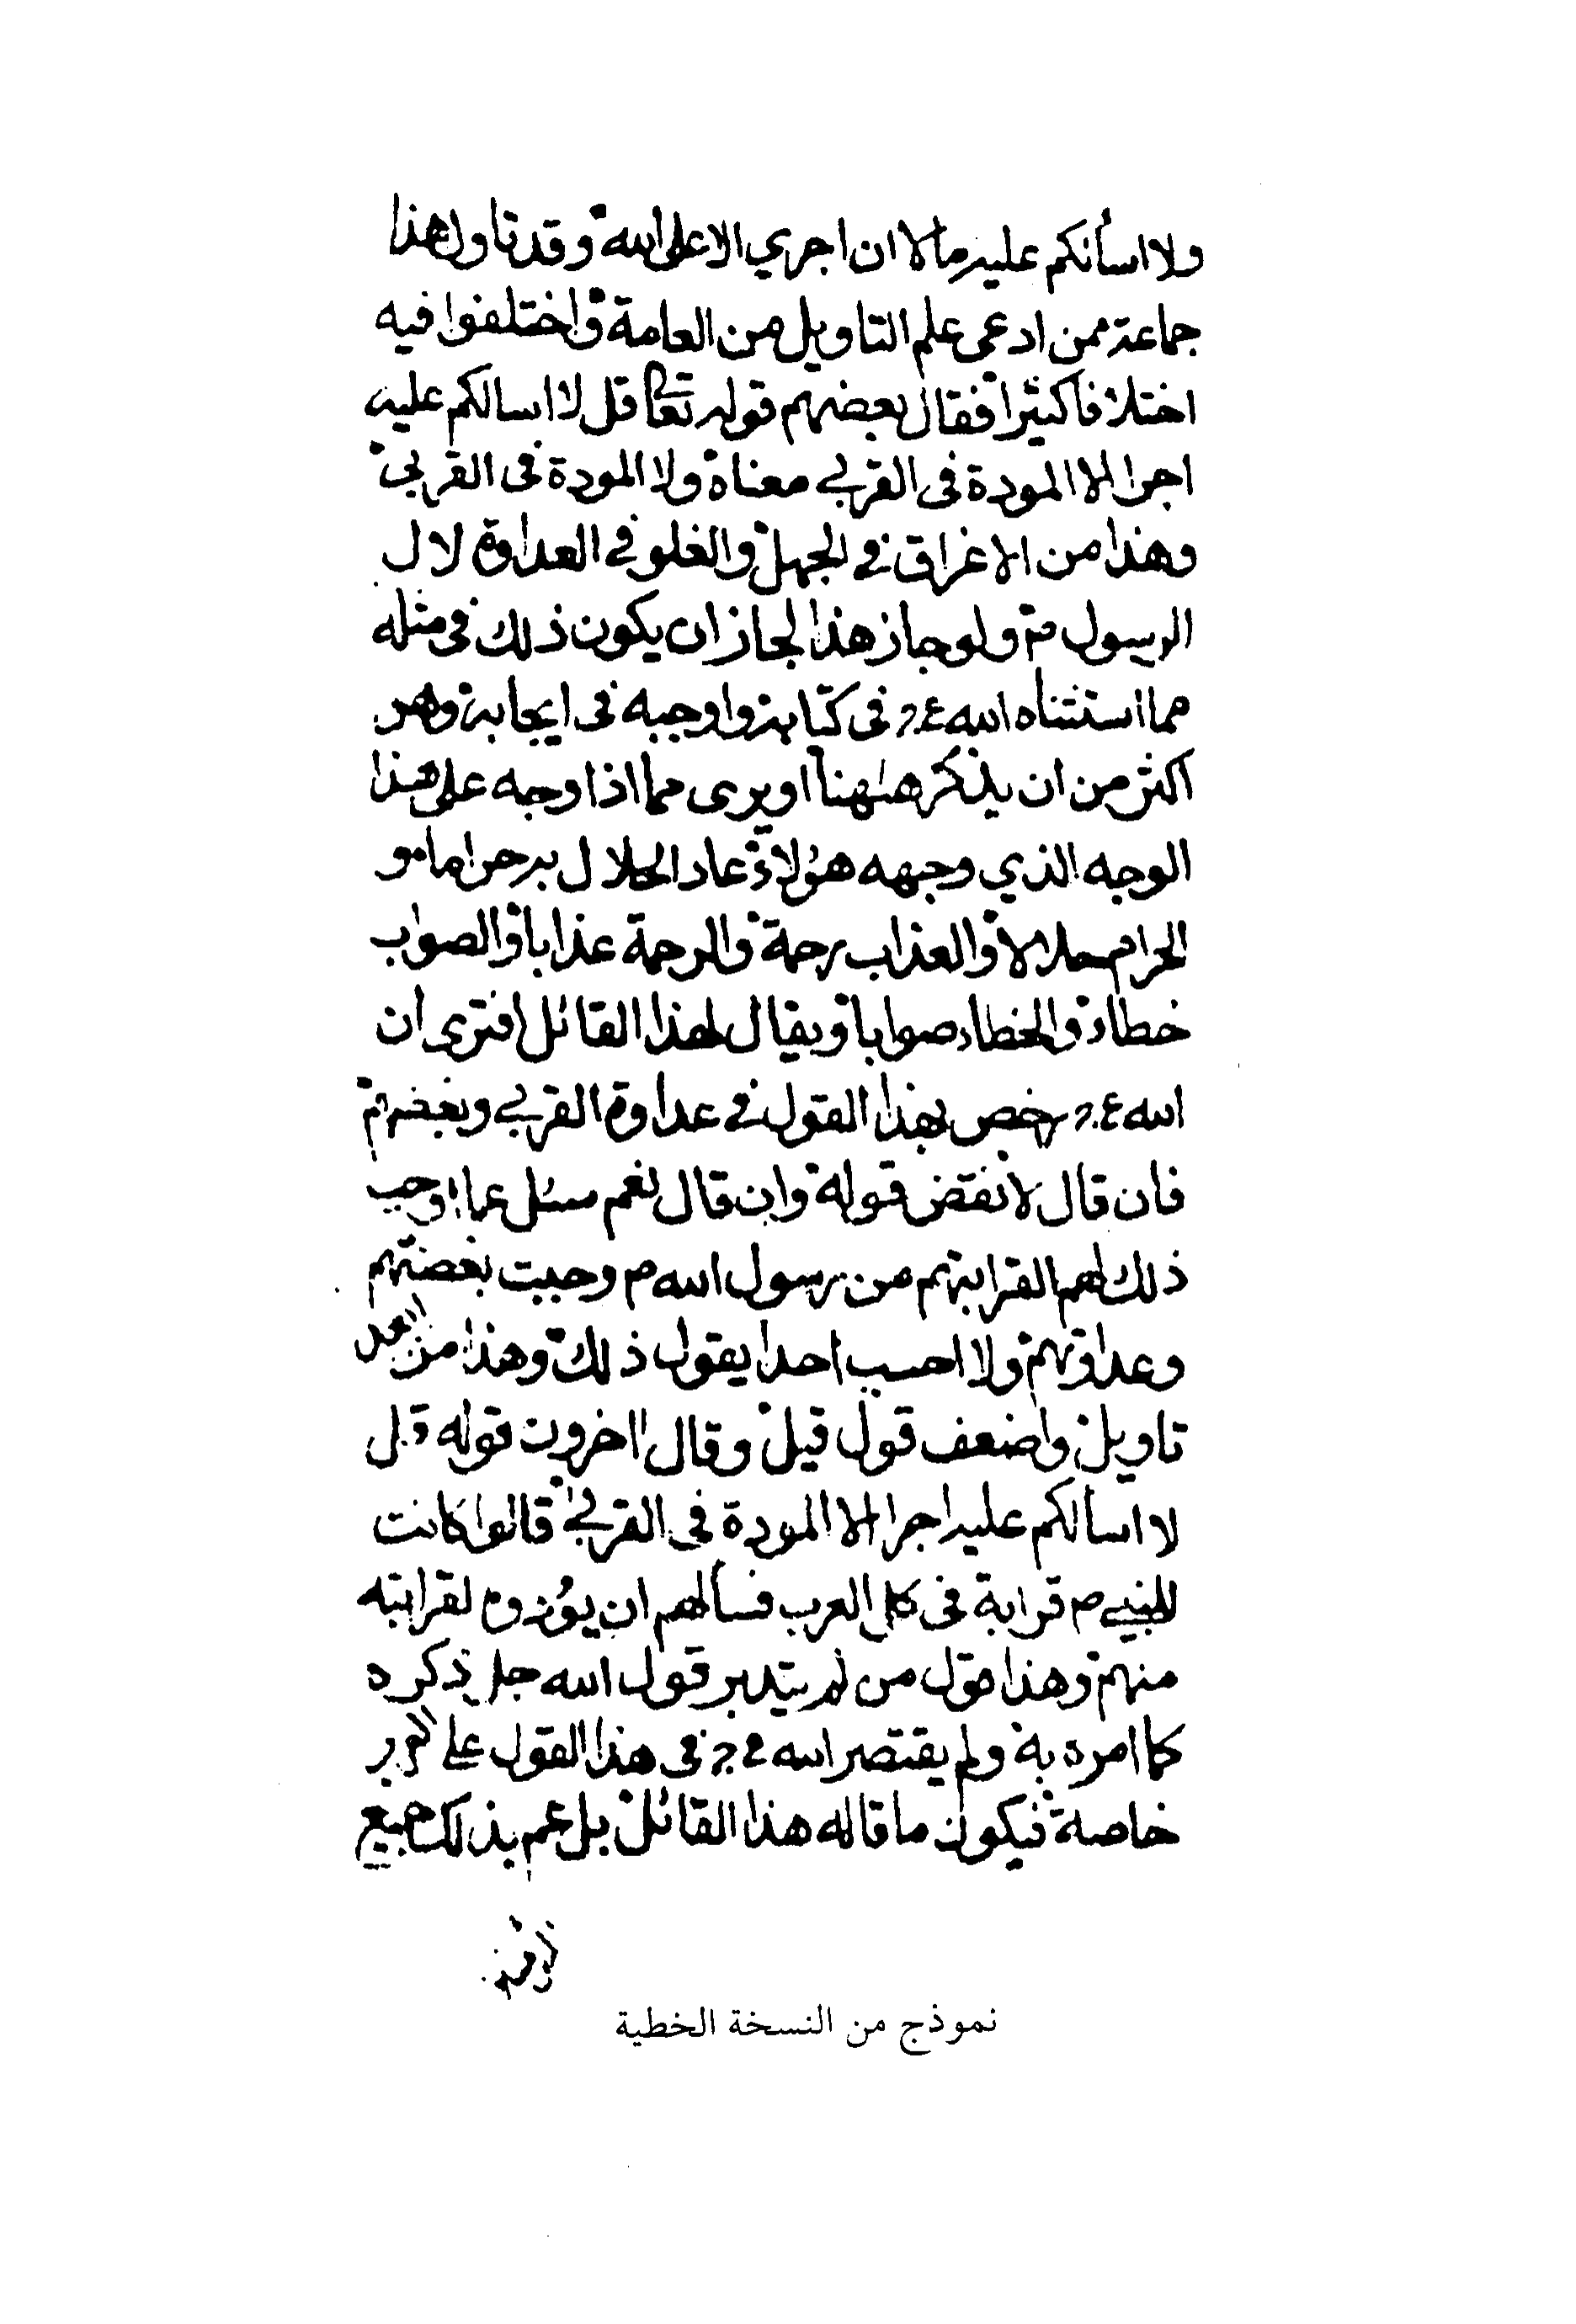 ولا اسألكم عليه مالا ان اجري الا على الله وقد تاول هذا
جماعة ممن ادعى علم التاويل من العامة واختلفوا فيه
اختلافا كثيرا فقال بعضهم قوله تعالى قل لا اسالكم عليه
اجرا الا المودة فى القربي معناه ولا المودة فى القربى
وهذا من الاغراق في الجهل والغلو في العداوة لال
الرسول ص ولو جاز هذا لجاز ان يكون ذلك فى مثله
مما استثناه الله ع ج فى كتابه واوجبه فى ايجابه وهو
اكثر من ان يذكر هاهنا او يرى مما اذا وجه على هذا
الوجه الذي وجهه هؤلاء عاد الحلال به حراما و
الحرام حلالا والعذاب رحمة والرحمة عذابا والصواب
خطاء والخطاء صوابا ويقال لهذا القائل افترى ان
الله ع ج رخص بهذا القول في عداوة القربي وبغضهم
فان قال لا نقض قوله وان قال نعم سئل عما اوجب
ذلك لهم القرابتهم من رسول الله م وجبت بغضتهم
وعداوتهم ولا احسب احدا يقول ذلك وهذا من ابعد
تاويل واضعف قول قيل وقال اخرون قوله قل
لا اسألكم عليه اجرا الا المودة فى القربى قالوا كانت
للنبي م قرابة فى كل العرب فسألهم ان يؤدوه لقرابته
منهم وهذا قول من لم يتدبر قول الله جل ذكره
كما امره به ولم يقتصر الله ع ج فى هذا القول على العرب
خاصة فيكون ما قاله هذا القائل بل عم بذلك جميع
نموذج من النسخة الخطية